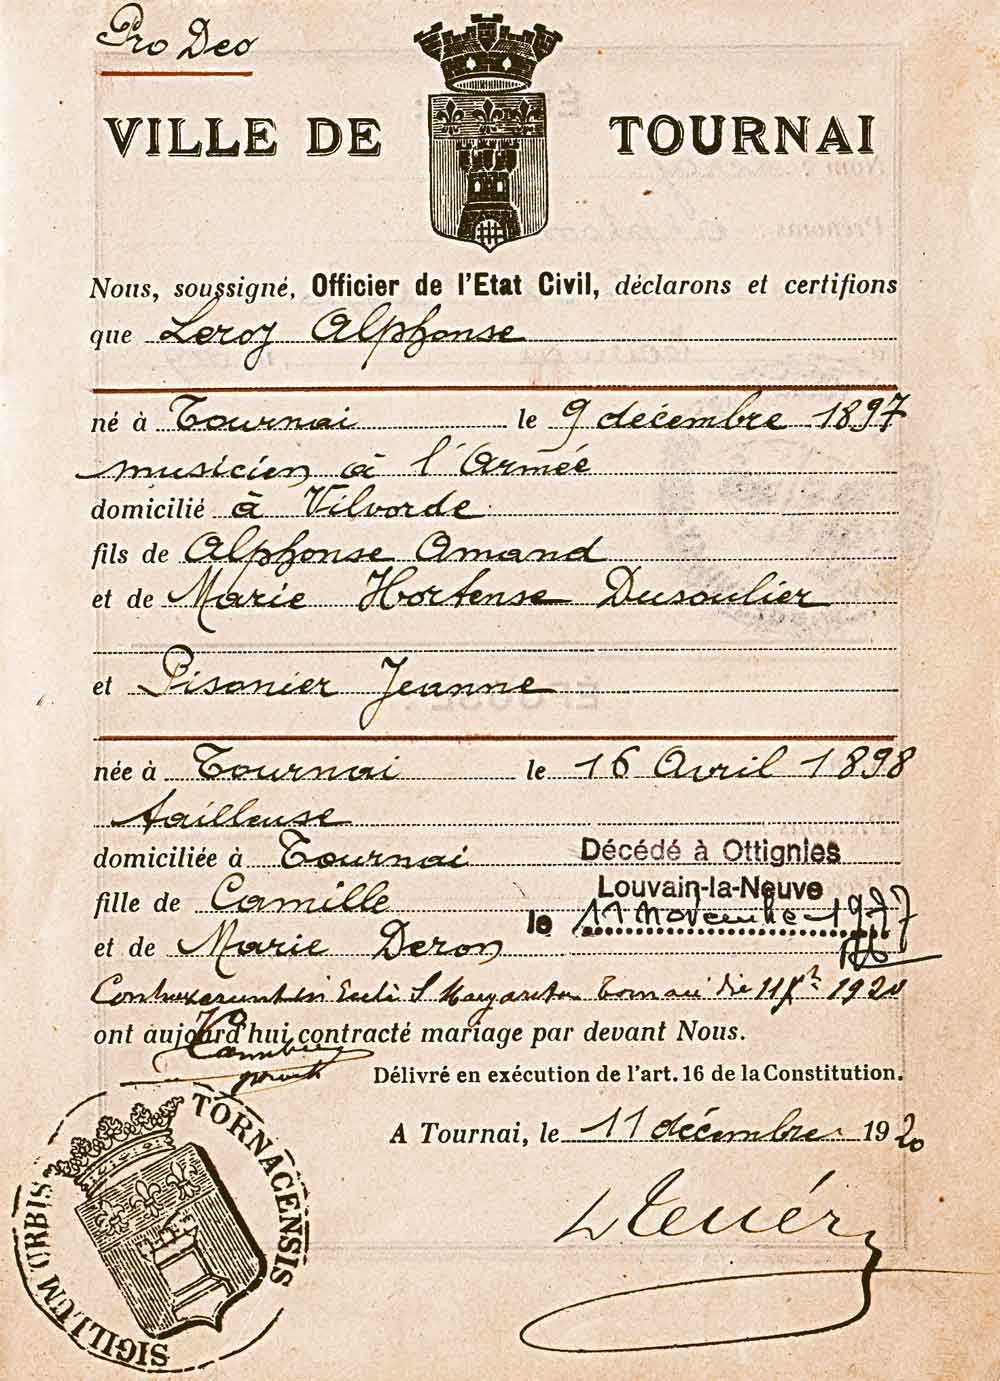 Pro Deo
VILLE DE TOURNAI
Nous, soussigné, Officier de l'Etat Civil, déclarons et certifions
que Leroy Alphonse
né à Tournai le 9 décembre 1897
musicien à l'Armée
domicilié à Vilvorde
fils de Alphonse Amand
et de Marie Hortense Dusoulier
et Pisonier Jeanne
née à Tournai le 16 Avril 1898
tailleuse
domiciliée à Tournai
Décédé à Ottignies
Louvain-la-Neuve
fille de Camille
le 11 novembre 1977
et de Marie Deron
Contraxerunt in S Margarita die 11 1920
ont aujourd'hui contracté mariage par devant Nous.
Délivré en exécution de l'art. 16 de la Constitution.
A Tournai, le 11 décembre 1920
SIGILLUM URBIS TORNACENSIS